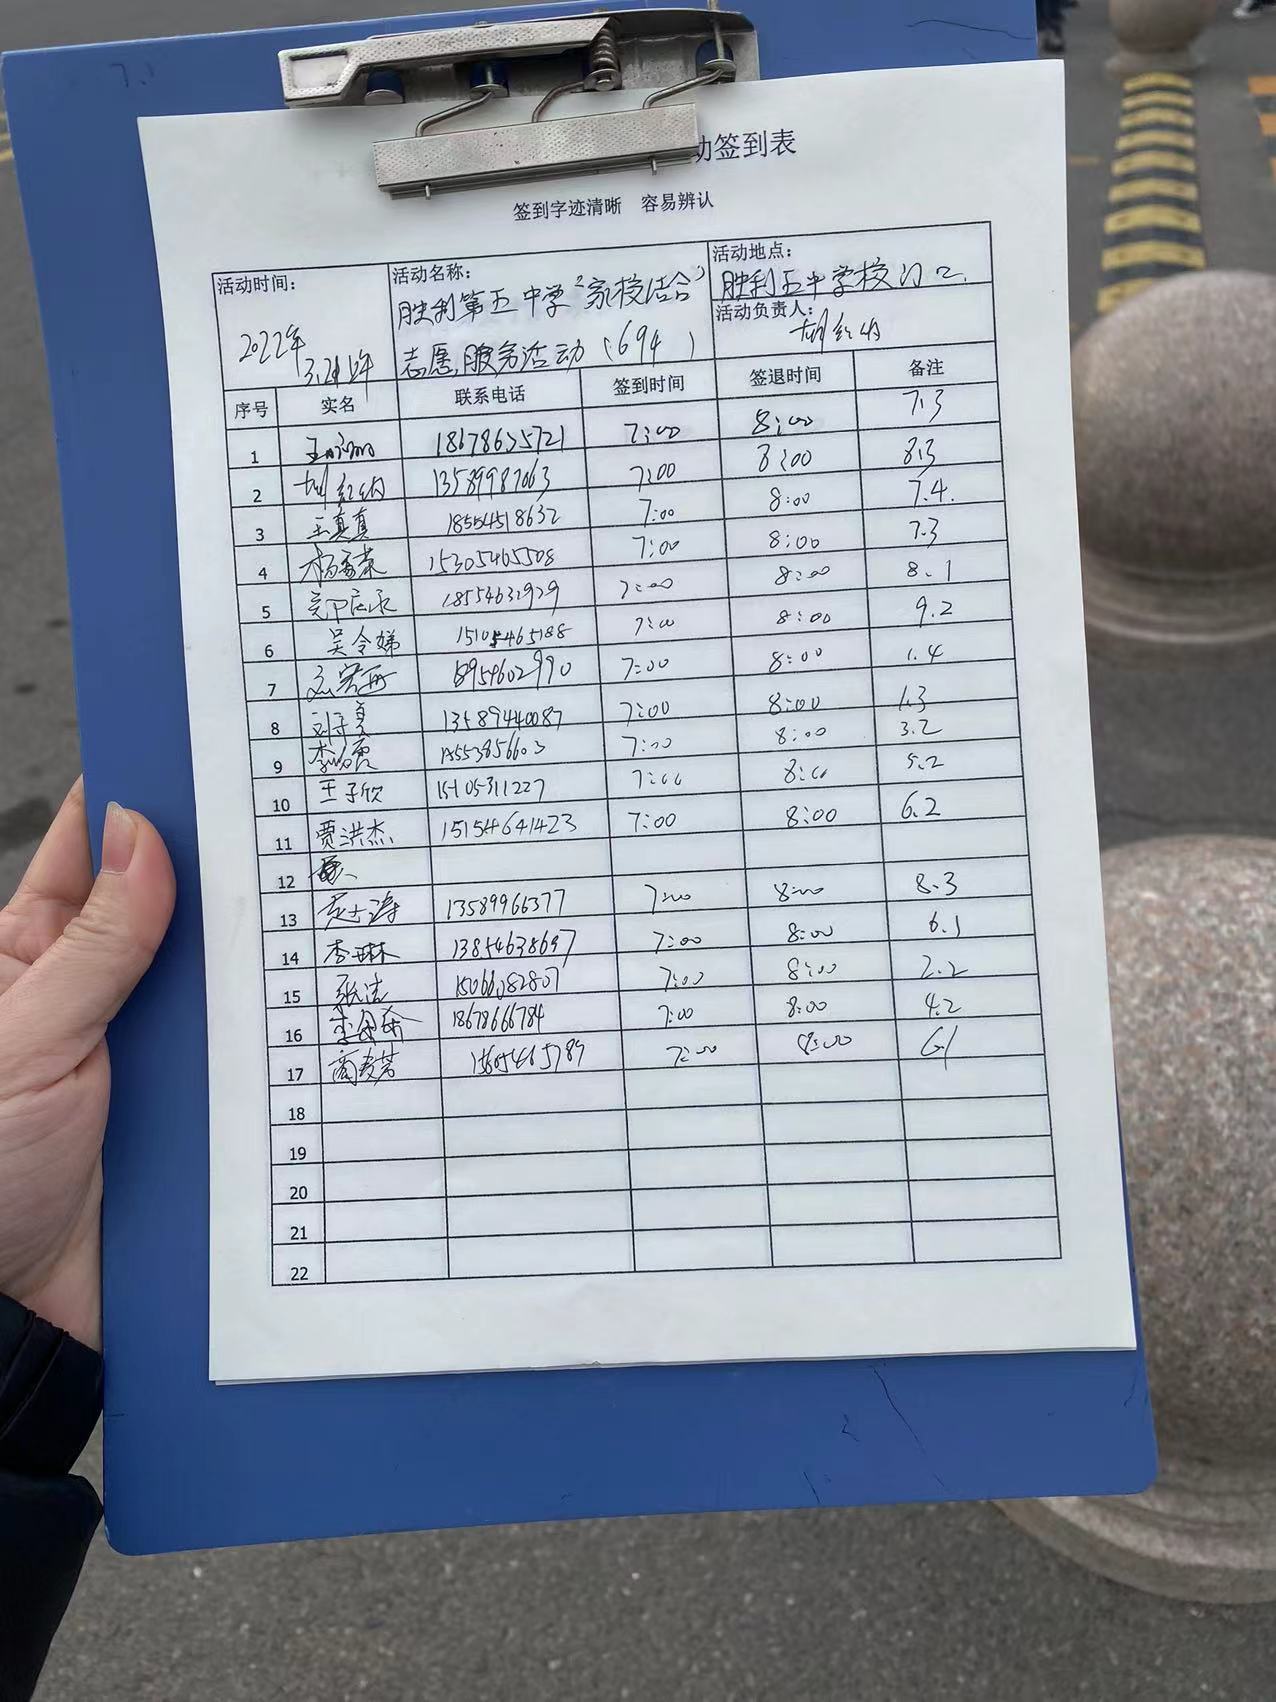 动签到表
签到字迹清晰 容易辨认
活动时间: 活动名称: 活动地点:
胜利第五中学"家校结合" 胜利五中学校门口.
2022年 志愿服务活动(694) 活动负责人:
3.21上午
序号 实名 联系电话 签到时间 签退时间 备注
1 7:00 8:00 7.3
2 13589987063 7:00 8:00 8.3
3 王真真 18554518632 7:00 8:00 7.4.
4 15305465508 7:00 8:00 7.3
5 18554632929 7:00 8:00 8.1
6 吴令娣 7:00 8:00 9.2
7 7:00 8:00 1.4
8 13589440087 7:00 8:00 1.3
9 7:00 8:00 3.2
10 王子欣 15105311227 7:00 8:00 5.2
11 贾洪杰 15154641423 7:00 8:00 6.2
12
13 13589966377 7:00 8:00 8.3
14 李琳 13854638697 7:00 8:00 6.1
15 张洁 7:00 8:00 2.2
16 18678666784 7:00 8:00 4.2
17 15605465789 7:00 8:00 6.1
18
19
20
21
22